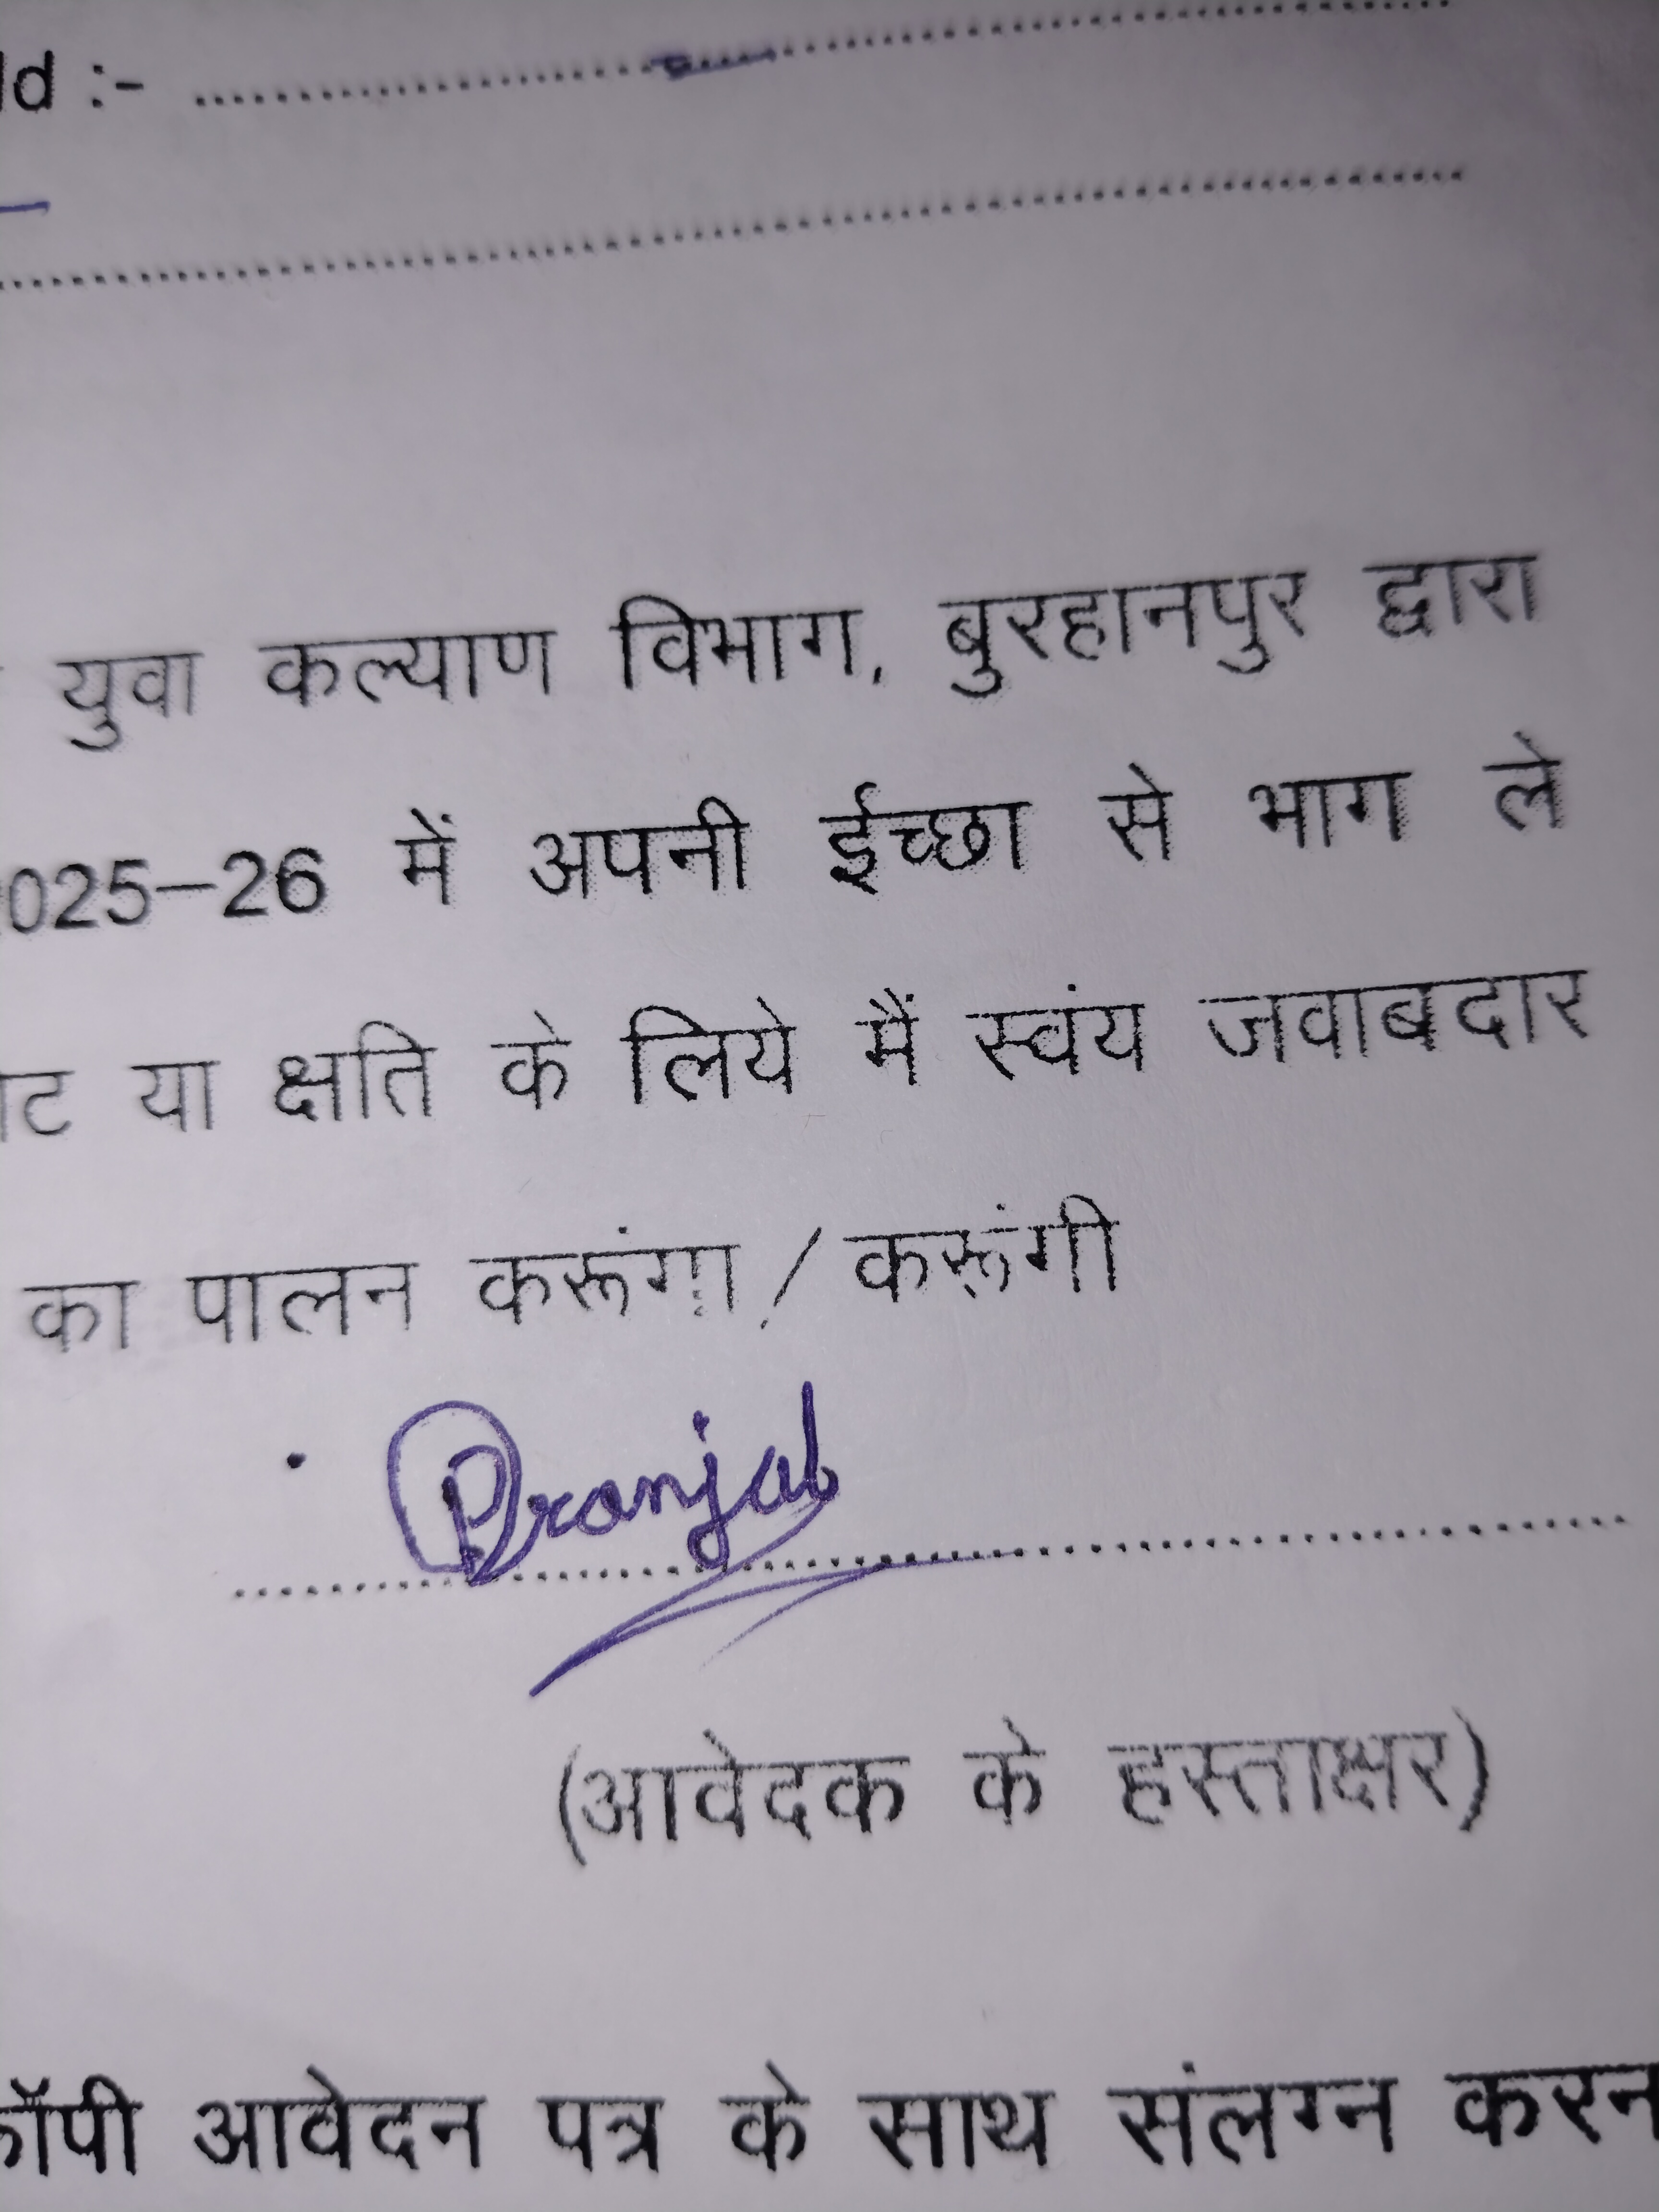 Id :- ..........
युवा कल्याण विभाग, बुरहानपुर द्वारा
025–26 में अपनी ईच्छा से भाग ले
या क्षति के लिये मैं स्वंय जवाबदार
का पालन करूंगा / करूंगी
Pranjal
(आवेदक के हस्ताक्षर)
कॉपी आवेदन पत्र के साथ संलग्न करन